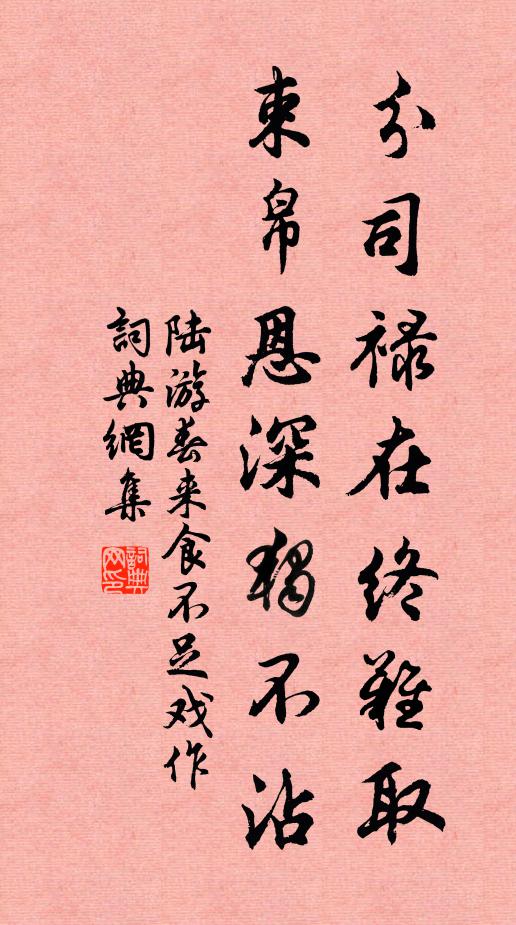 分司禄在终难取
束帛恩深独不沾
陆游春来食不足戏作
词典网集
詞典网印